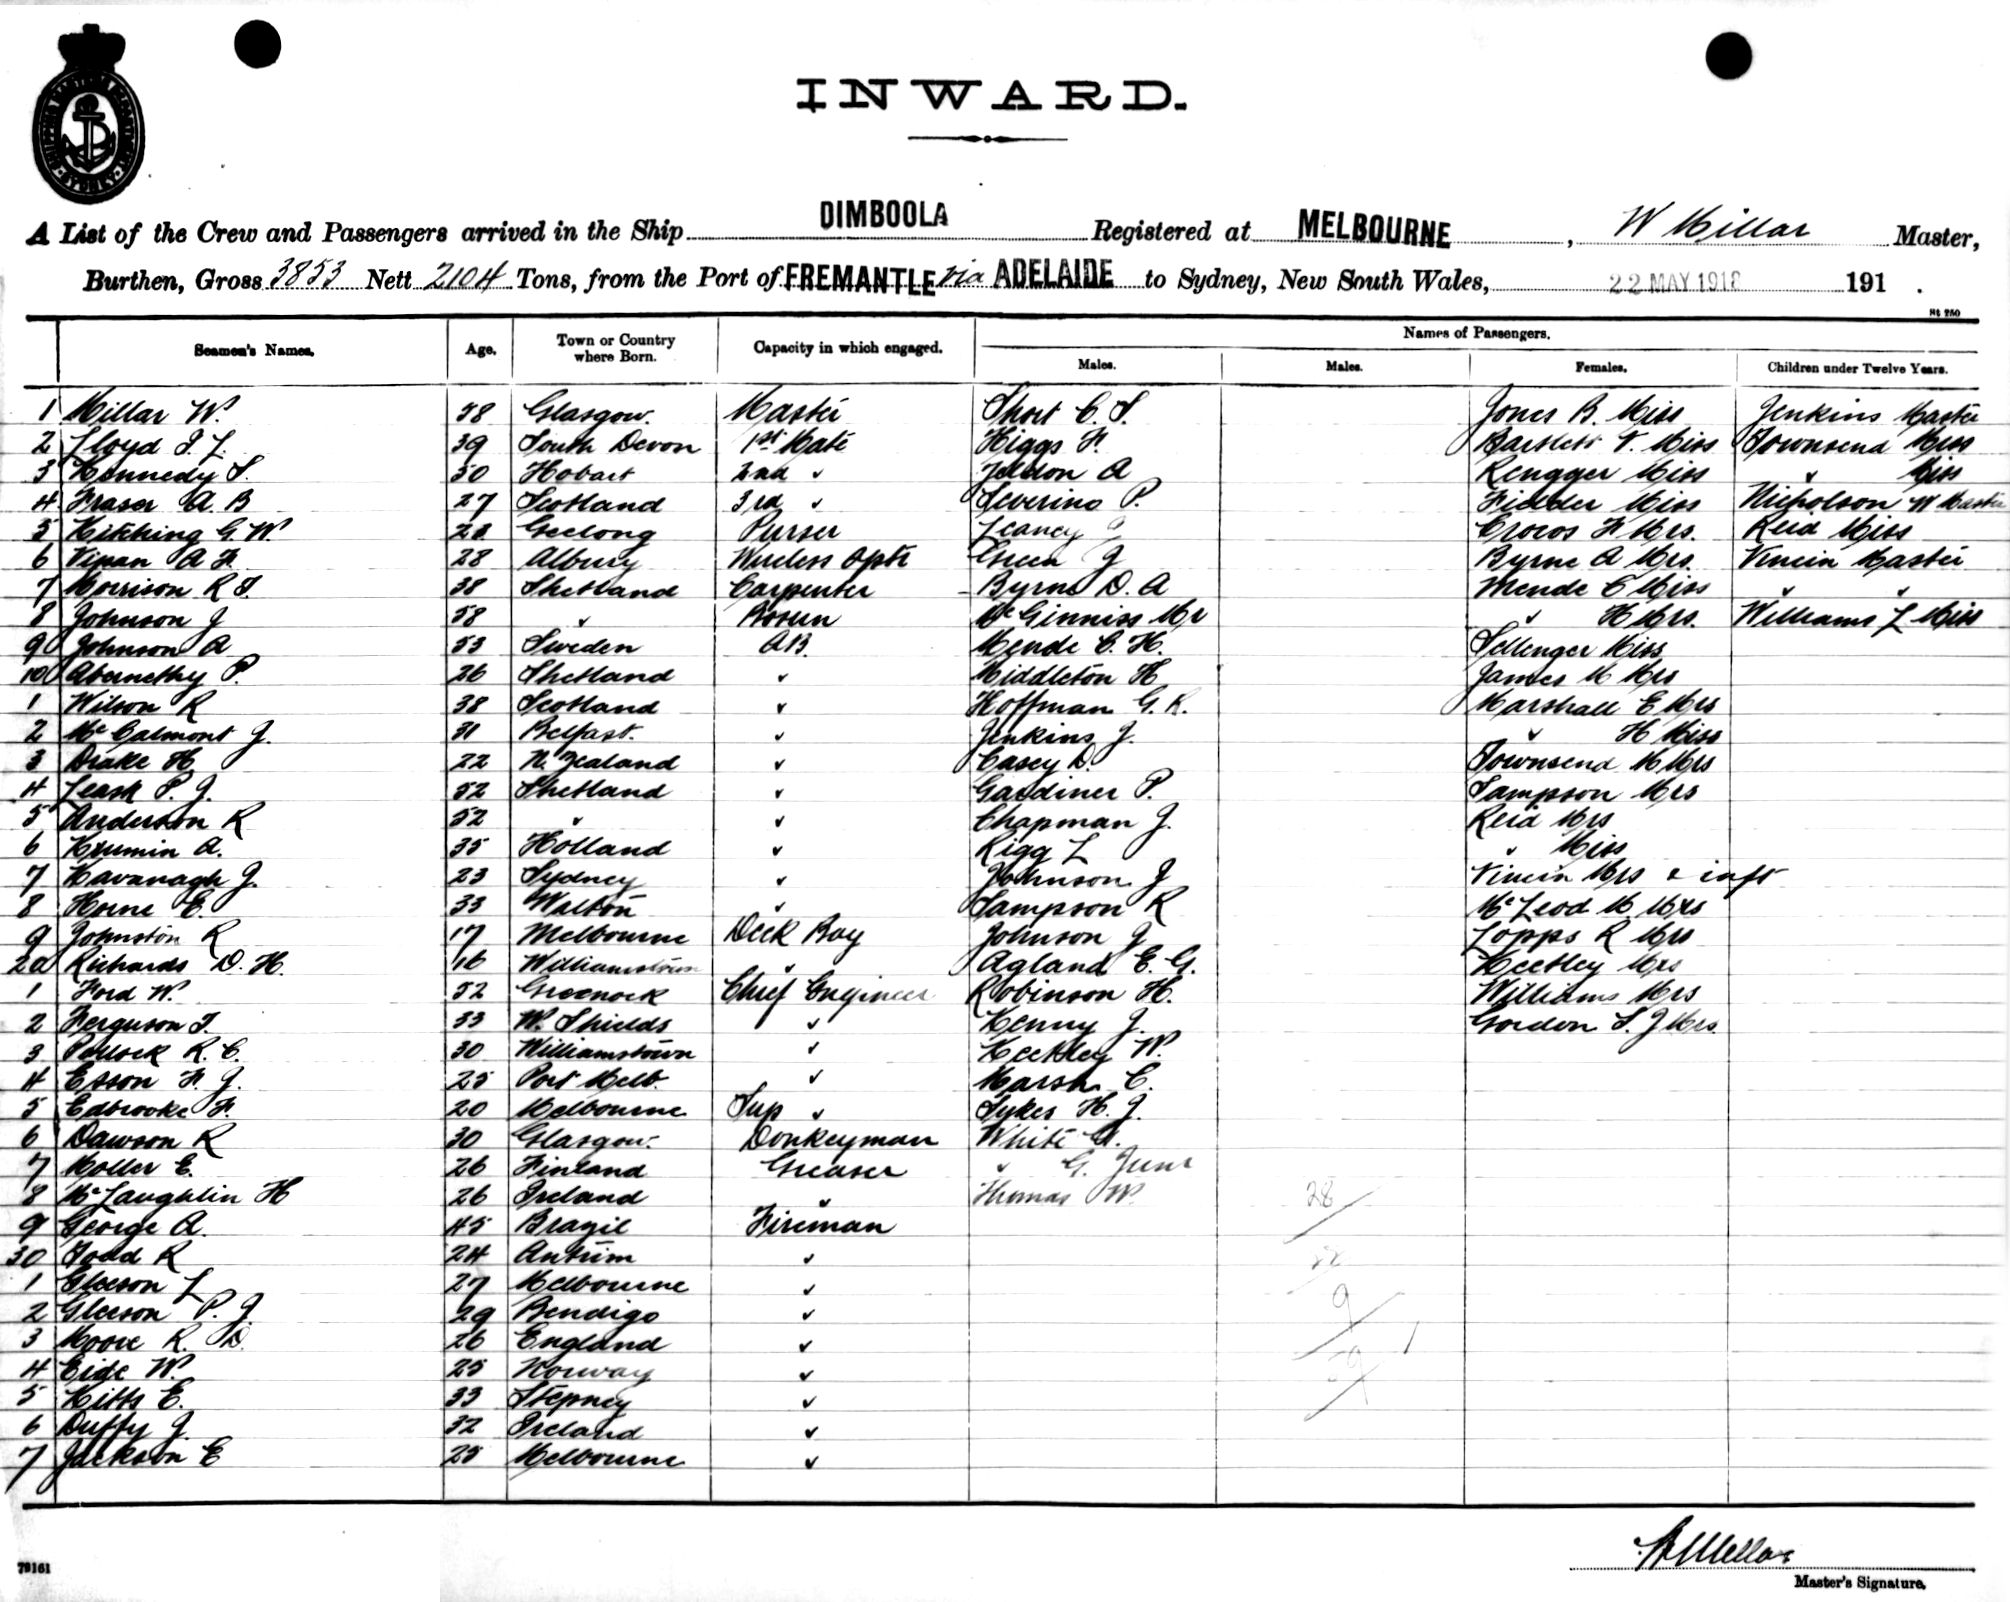 INWARD.
A List of the Crew and Passengers arrived in the Ship DIMBOOLA Registered at MELBOURNE, W Millar Master,
Burthen, Gross 3853 Nett 2104 Tons, from the Port of FREMANTLE via ADELAIDE to Sydney, New South Wales, 22 MAY 1918 191 .
Seamen's Names. Age. Town or Country where Born. Capacity in which engaged. Names of Passengers.
Males. Males. Females. Children under Twelve Years.
1 Millar W. 58 Glasgow. Master Short C. S. Jones B. Miss Jenkins Master
2 Lloyd 39 South Devon 1st Mate Higgs F. Bartlett V. Miss Townsend Miss
3 Kennedy S. 50 Hobart 2nd " A Rengger Miss " Miss
4 Fraser A. B 27 Scotland 3rd " Severino P. Fielder Miss Nicholson W Master
5 Kitching G. W. Geelong Purser Leaney Crocos F Mrs. Reid Miss
6 Vipan A F. 28 Albury Wireless Optr Green J Byrne A Mrs. Vincin Master
7 Morrison R. T. 38 Shetland Carpenter Byrne D. A Mende C Miss " "
8 Johnson J 58 " Bosun McGinniss Mr " H Mrs. Williams L Miss
9 Johnson A 53 Sweden A.B. Mende C. H. Sellenger Miss
10 Abernethy P. 26 Shetland " Middleton H James M Mrs
1 Wilson R 38 Scotland " Hoffman G. R. Marshall E Mrs
2 McCalmont J. 31 Belfast. " Jenkins J. " H Miss
3 Drake H 22 N. Zealand " Casey D. Townsend M Mrs
4 Leask P. J. 52 Shetland " Gardiner P. Sampson Mrs
5 Anderson R 52 " " Chapman J. Reid Mrs
6 Krumin A. 35 Holland " Rigg L " Miss
7 Kavanagh J. 23 Sydney " Johnson J Vincin Mrs & inft
8 Horne E. 33 Walton " Sampson R McLeod M. Mrs
9 Johnston R 17 Melbourne Deck Boy Johnson J Lopps R Mrs
20 Richards D. H. 16 Williamstown " Agland E. G. Keetley Mrs
1 Ford W. 52 Greenock Chief Engineer Robinson H. Williams Mrs
2 Ferguson T. 33 W. Shields " Kenny J. Gordon S. J Mrs.
3 Pollock R. C. 30 Williamstown " Keetley W.
4 Esson F. J. 25 Port Melb. " Marsh C.
5 Edbrooke F. 20 Melbourne Sup " Sykes H. J.
6 Dawson R 30 Glasgow. Donkeyman White G.
7 Moller E. 26 Finland Greaser " G. Junr
8 McLaughlin H 26 Ireland " Thomas W. 28
9 George A. 45 Brazil Fireman
30 Todd R 24 Antrim " 22
1 Gleeson L 27 Melbourne "
2 Gleeson P. J. 29 Bendigo " 9
3 Moore R. D. 26 England " 1
4 Eide W. 25 Norway " 59
5 Kitts E. 33 Stepney "
6 Duffy J. 32 Ireland "
7 Jackson E 25 Melbourne "
W Millar
Master's Signature.